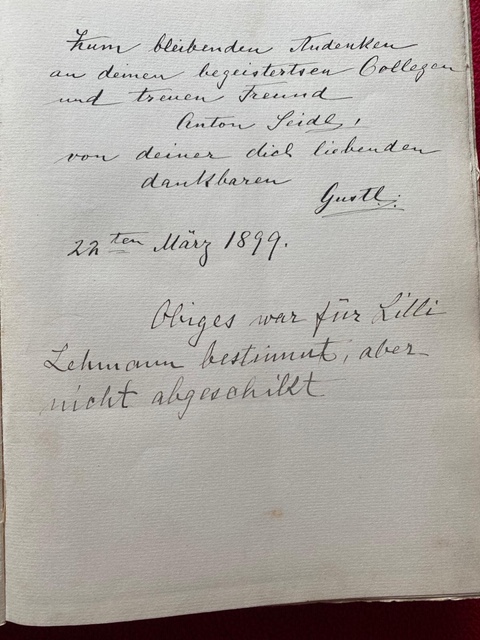 Zum bleibenden Andenken
an deinen begeistertsen Collegen
und treuen Freund
Anton Seidl,
von deiner dich liebenden
dankbaren
Gustl.
22ten März 1899.
Obiges war für Lilli
Lehmann bestimmt, aber
nicht abgeschikt